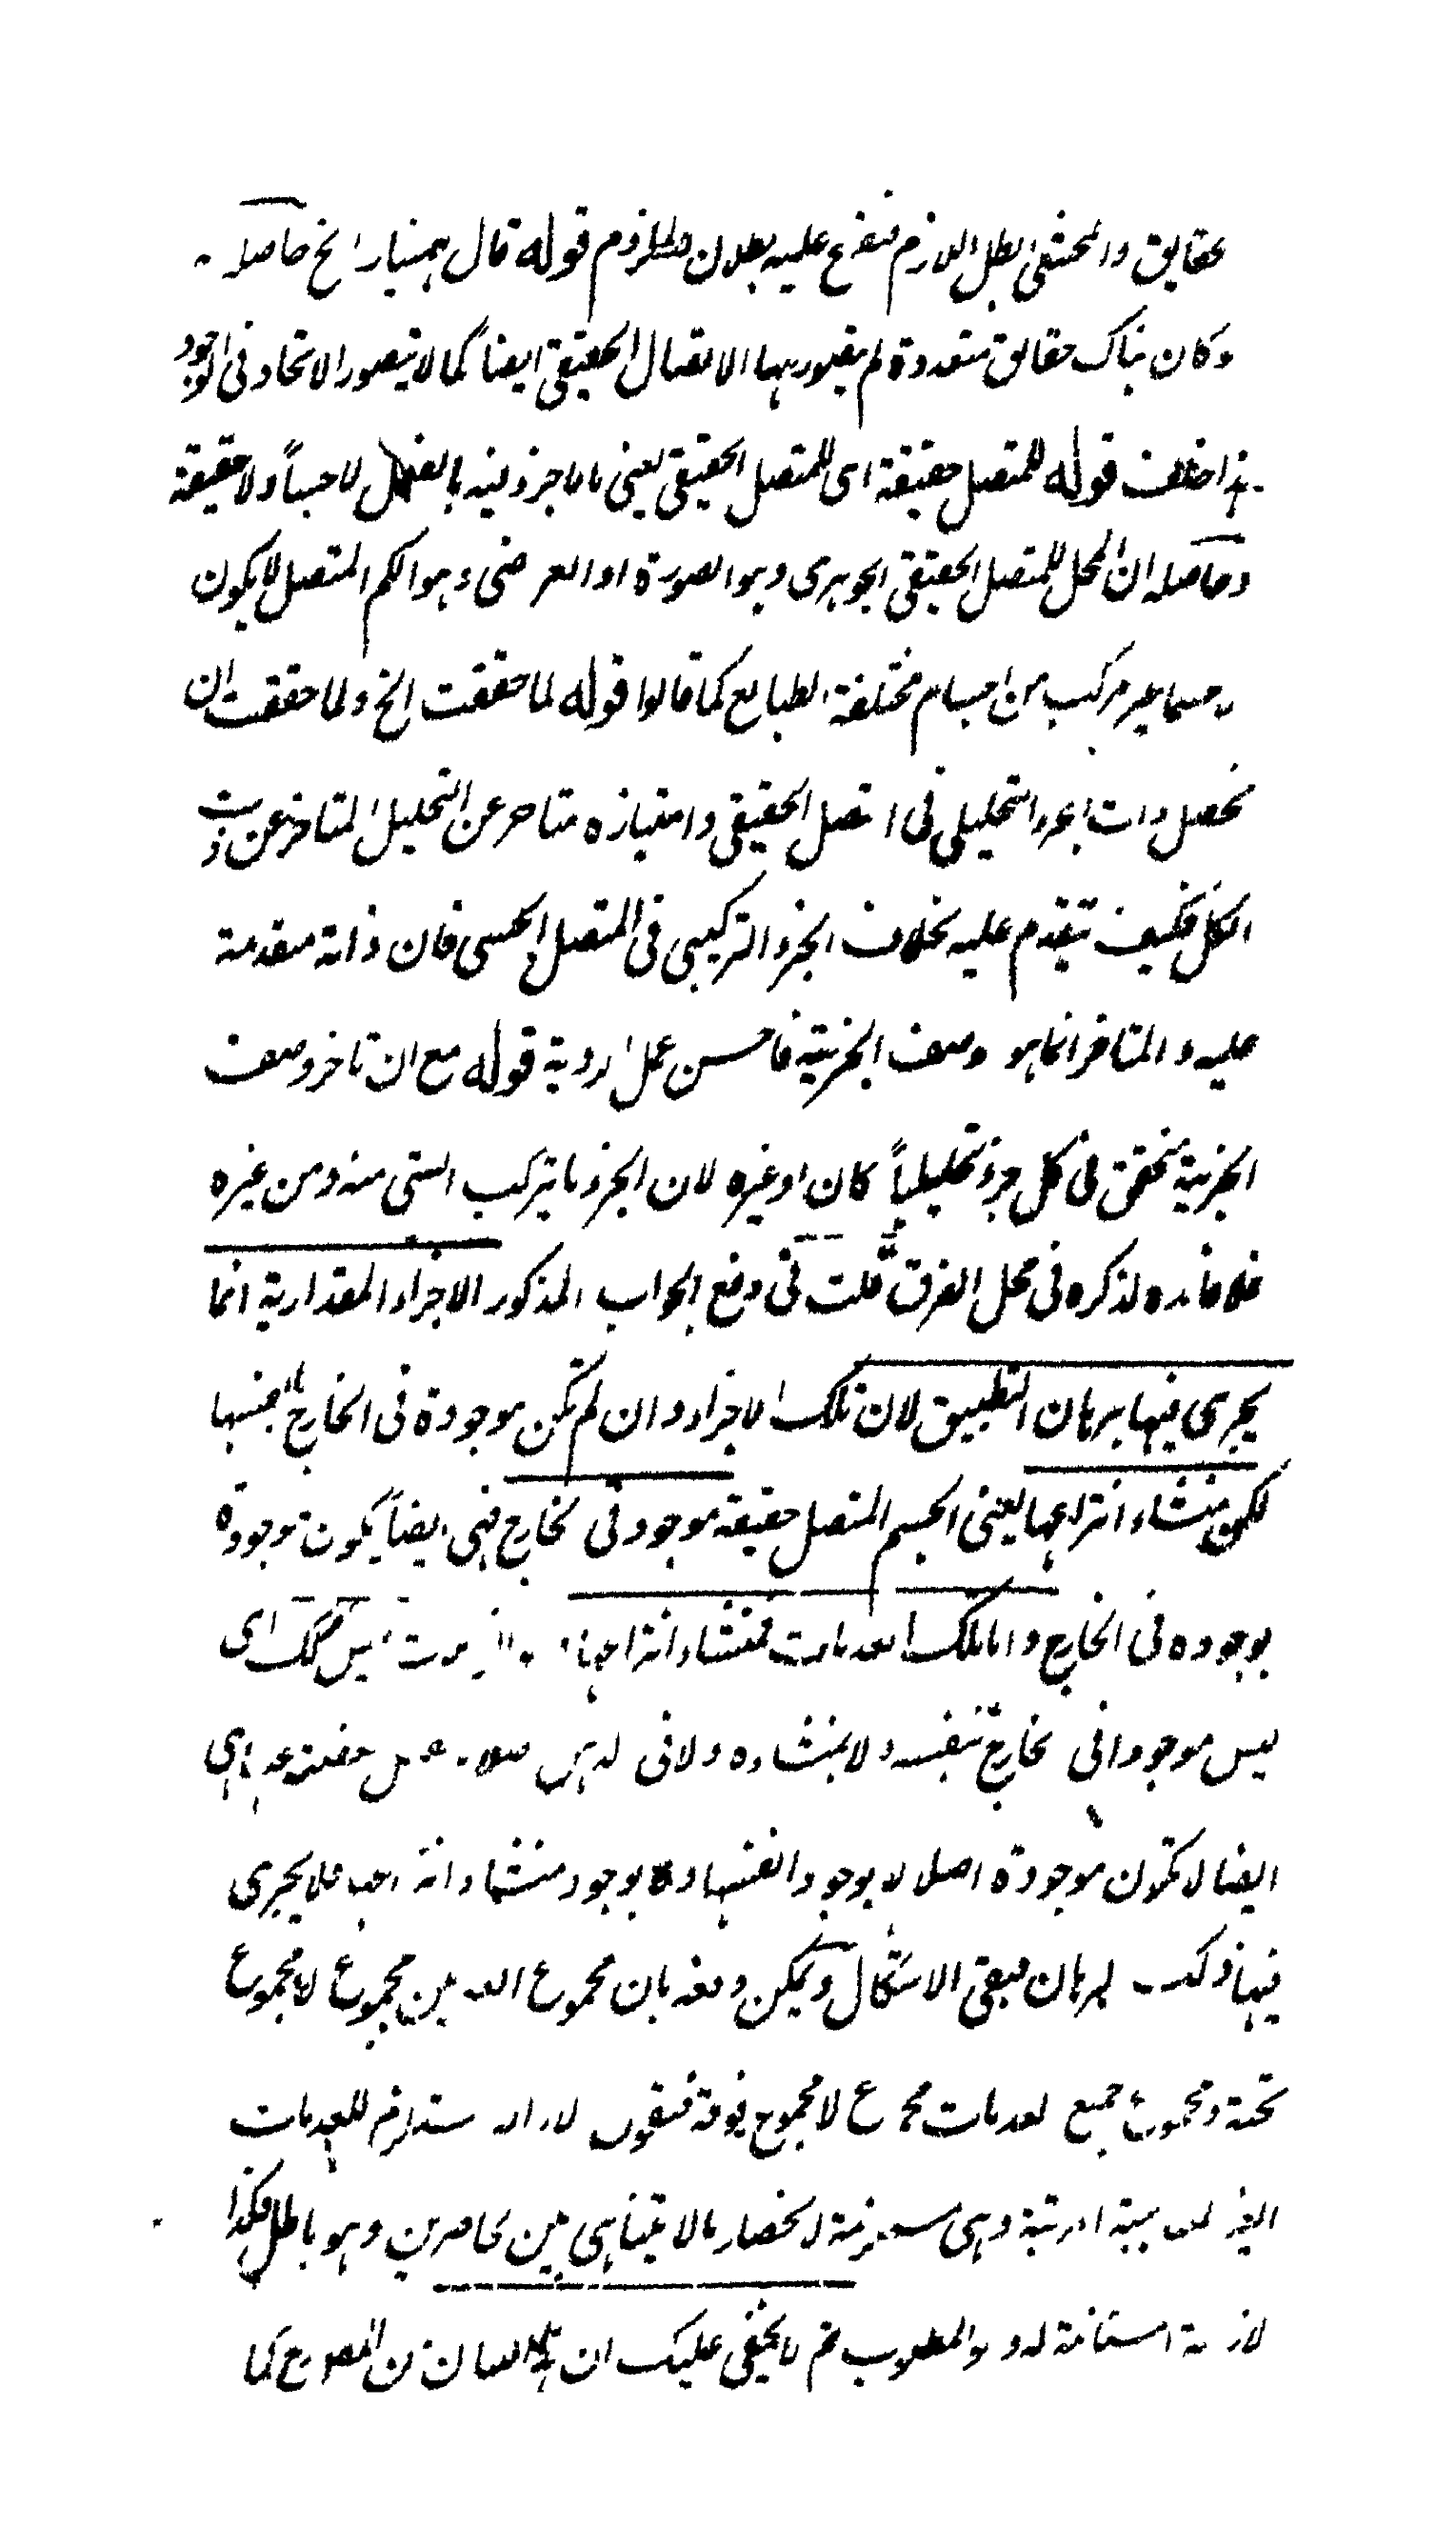 حقايق والمحشي ابطل اللازم فتفرع عليه بطلان الملزوم قوله قال بهمنيار الخ حاصله
وكان هناك حقايق متعددة لم يتصور بها الاتصال الحقيقي ايضاً كما لا يتصور الاتحاد في الوجود
هذا خلف قوله للمتصل حقيقة اى للمتصل الحقيقي يعني ما لا جزء فيه بالفعل لا حساً ولا حقيقة
وحاصله ان المحل للمتصل الحقيقي الجوهرى وهو الصورة او العرضى وهو الكم المتصل لا يكون
جسما غير مركب من اجسام مختلفة الطبايع كما قالوا قوله لما حققت الخ ولما حققت ان
تحصل ذات الجزء التحليلي في المتصل الحقيقي وامتيازه متاخر عن التحليل المتاخر عن ذات
الكل فكيف تتقدم عليه بخلاف الجزء التركيبي في المتصل الحسى فان ذاته متقدمة
عليه والمتاخر انما هو وصف الجزئية فاحسن عمل الروية قوله مع ان تاخر وصف
الجزئية متحقق في كل جزء تحليلياً كان او غيره لان الجزء ما يتركب الشي منه ومن غيره
فلا فائده لذكره في محل الفرق قلت في دفع الجواب المذكور الاجزاء المقدارية انما
يجرى فيها برهان التطبيق لان تلك الاجزاء وان لم تكن موجودة في الخارج بانفسها
لكن منشاء انتزاعها يعني الجسم المتصل حقيقة موجود في الخارج فهي ايضاً يكون موجودة
بوجوده في الخارج واما تلك العدمات فمنشاء انتزاعها ليس كك اى
ليس موجودا في الخارج بنفسه ولا بمنشاءه ولا في
ايضا لا تكون موجودة اصلا لا بوجود انفسها ولا بوجود منشاء انتزاعها فلا يجرى
فيها ذلك البرهان فبقي الاشكال ويمكن دفعه بان مجموع العدمين مجموع لا مجموع
تحته ومجموع جميع العدمات مجموع لا مجموع فوقه فنقول مستلزم للعدمات
الغير المتناهية المرتبة وهي مستلزمة لانحصار ما لا يتناهى بين حاصرين وهو باطل فكذا
لازمة استحالة له وهو المطلوب ثم لا يخفى عليك ان هذا البيان كما